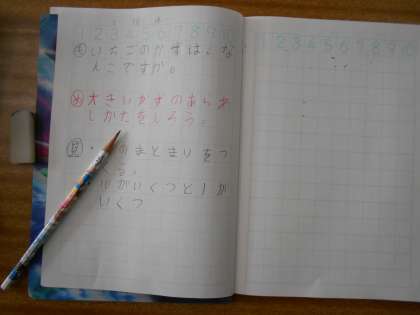 1 2 3 4 5 6 7 8 9 10
も いちごのかずは、な
んこですか。
め 大きいかずのあらわ
しかたをしろう。
見 ・ のまとまりをつ
くる。
10がいくつと1が
いくつ
1 2 3 4 5 6 7 8 9 10